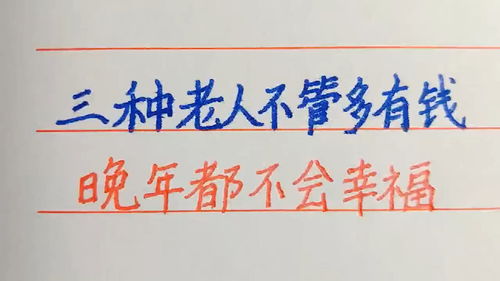 三种老人不管多有钱
晚年都不会幸福